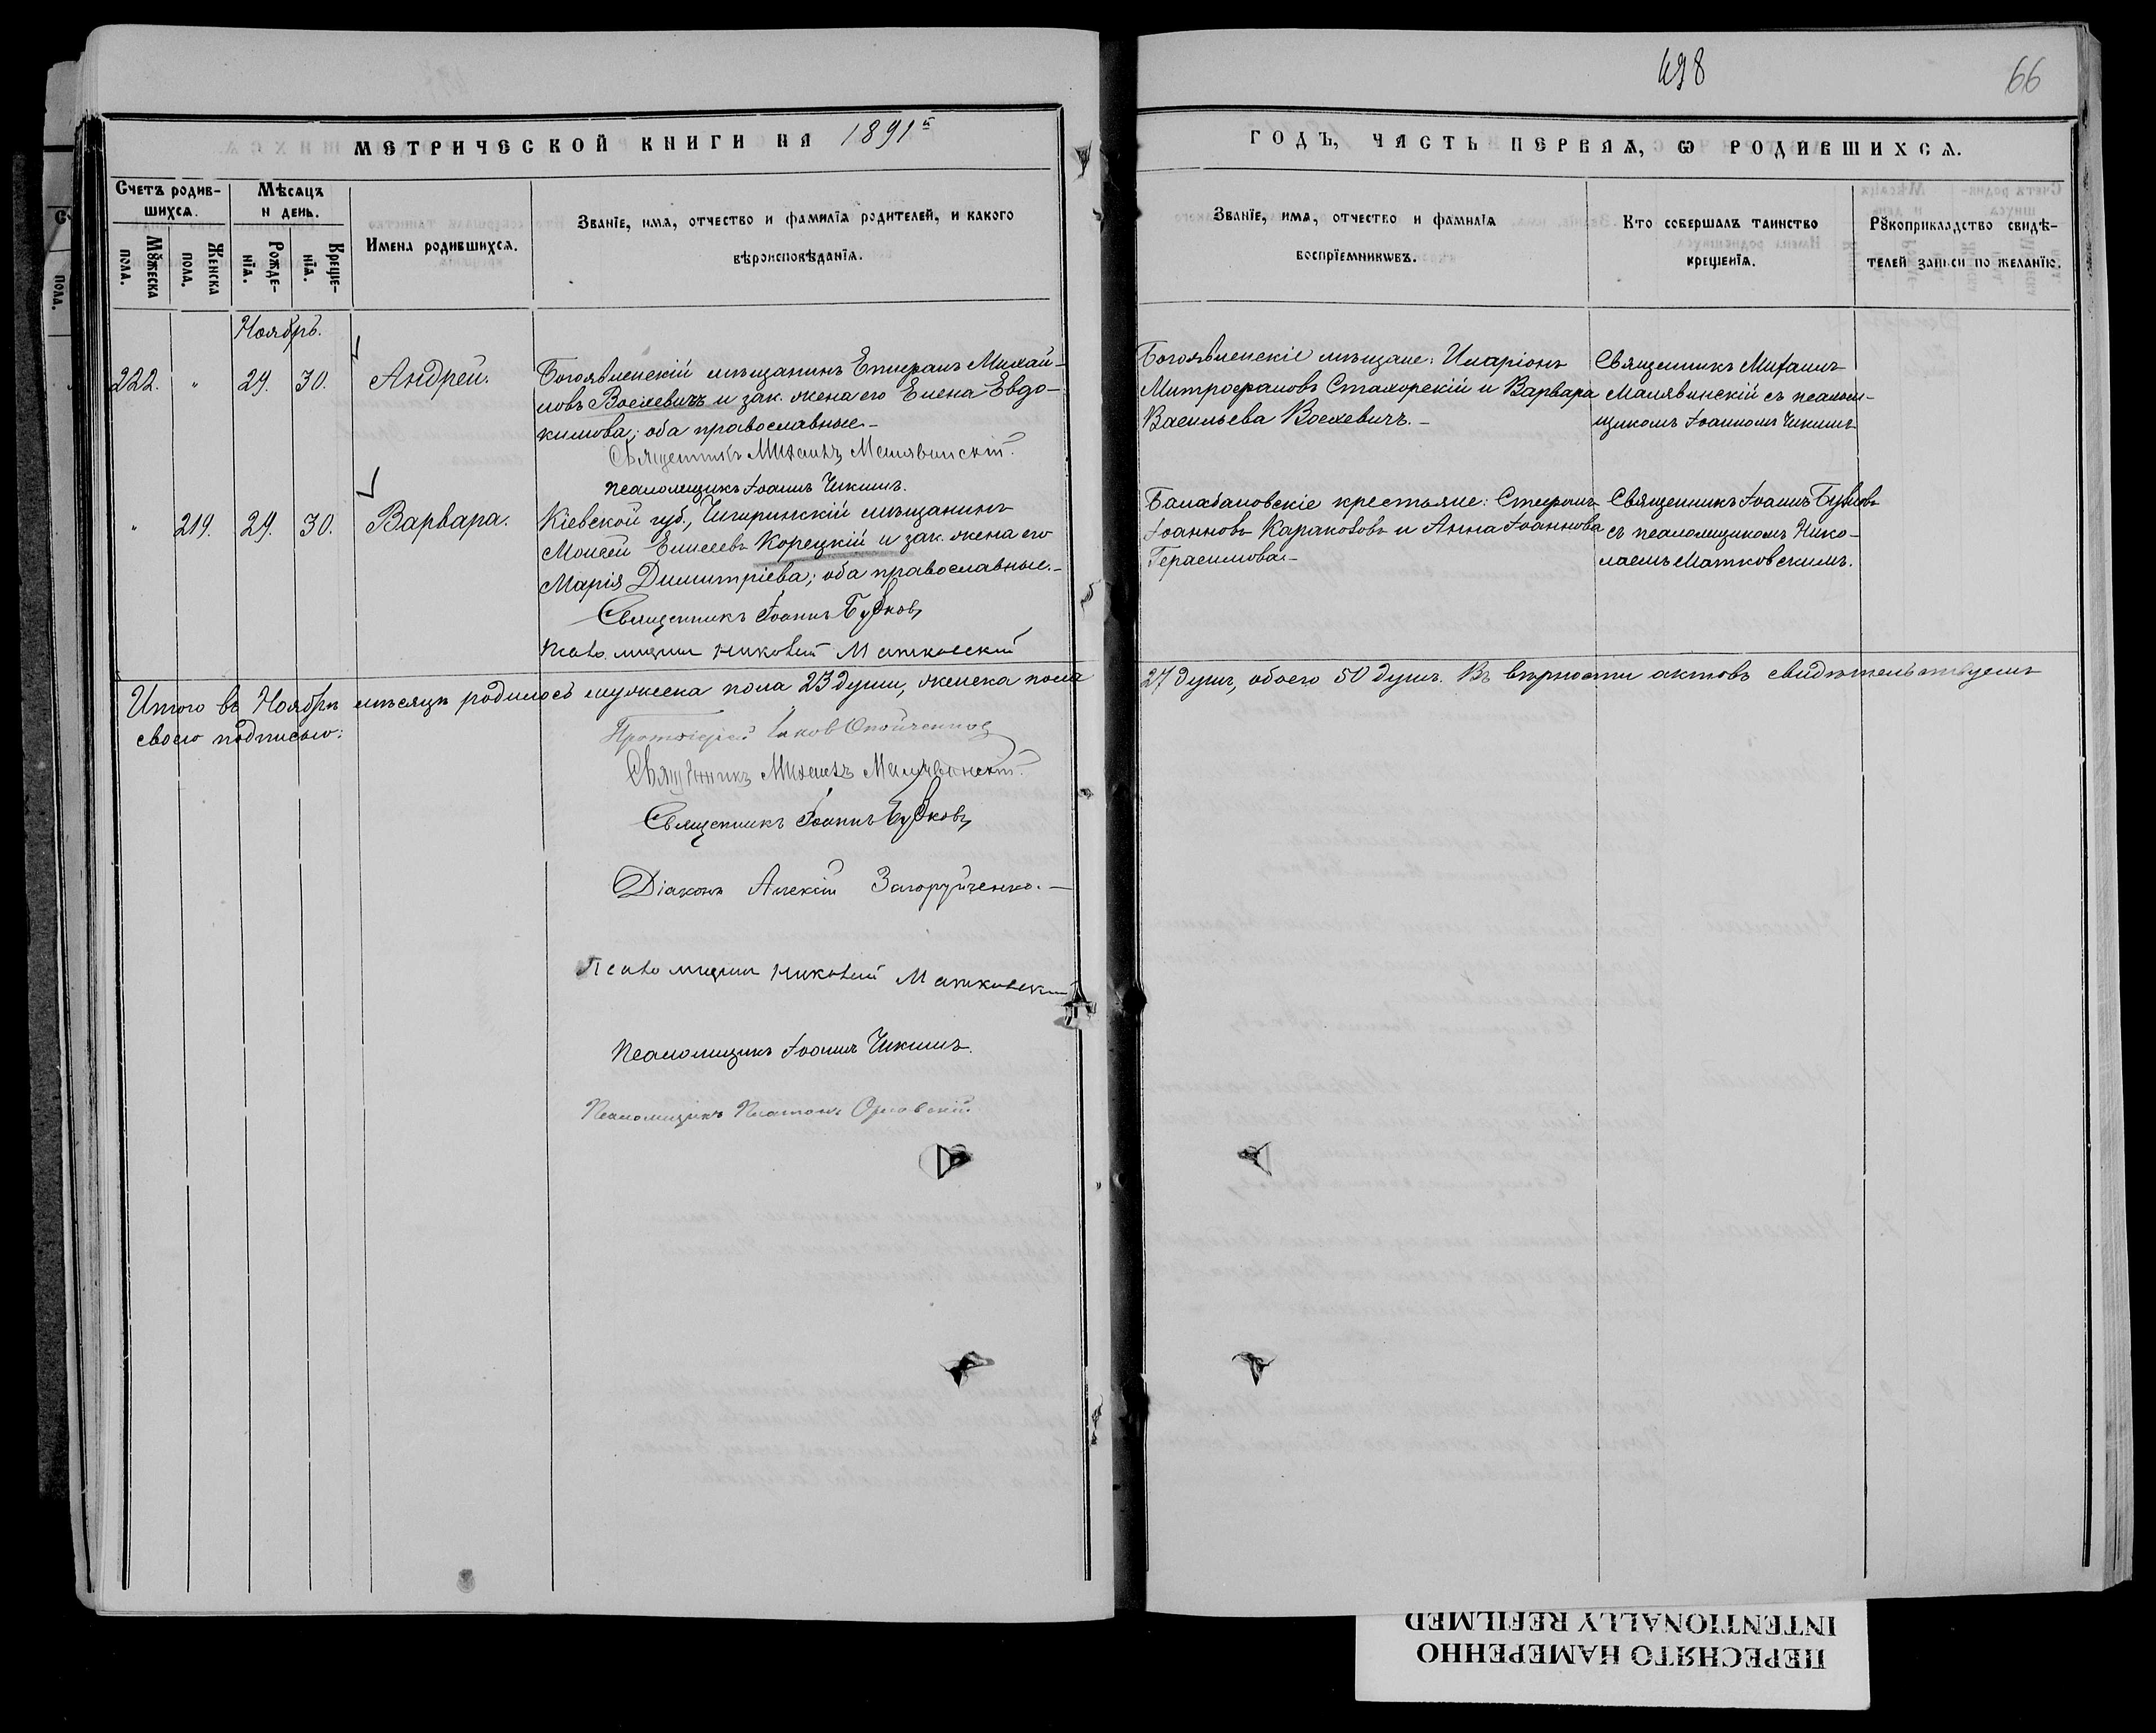 498
66
МЕТРИЧЕСКОЙ КНИГИ НА 1891й
ГОДЪ, ЧАСТЬ ПЕРВАЯ, Ѡ РОДИВШИХСѦ.
Счетъ родив-
шихсѧ.
Мѣсяцъ
и день.
Мꙋжеска
пола.
Женска
пола.
Рожде-
нїя.
Креще-
нїя.
Имена родившихсѧ.
Званїе, имѧ, отчество и фамилїѧ родителей, и какого
вѣроисповѣданїѧ.
Званїе, имѧ, отчество и фамилїѧ
воспрїемниковъ.
Кто совершалъ таинство
крещенїѧ.
Рꙋкоприкладство свидѣ-
телей записи по желанїю.
Ноябрь.
222. " 29. 30. Андрей.
Богоявленскій мѣщанинъ Епифанъ Михай-
ловъ Воехевичъ и зак. жена его Елена Евдо-
кимова; оба православные.-
Священникъ Михаилъ Малявинскій.
Псаломщикъ Іоаннъ Чикинъ.
Богоявленскіе мѣщане: Иларіонъ
Митрофановъ Стахорскій и Варвара
Васильева Воехевичъ.-
Священникъ Михаилъ
Малявинскій съ псалом-
щикомъ Іоанномъ Чикинъ
" 219. 29. 30. Варвара.
Кіевской губ., Чигиринскій мѣщанинъ
Моисей Елисеевъ Корецкій и зак. жена его
Марія Димитріева; оба православные.-
Священникъ Іоаннъ Будковъ
Псаломщикъ Николай Матковскій
Балабановскіе крестьяне: Стефанъ
Іоанновъ Караповъ и Анна Іоаннова
Герасимова.-
Священникъ Іоаннъ Будковъ
съ псаломщикомъ Нико-
лаемъ Матковскимъ.
Итого въ Ноябрѣ мѣсяцѣ родилось мужеска пола 23 души, женска пола
27 душъ, обоего 50 душъ. Въ вѣрности актовъ свидѣтельствуемъ
своею подписью:
Протоіерей Іаков
Священникъ Михаилъ Малявинскій.
Священникъ Іоаннъ Будковъ
Діаконъ Алексій Загоруйченко.-
Псаломщикъ Николай Матковскій
Псаломщикъ Іоаннъ Чикинъ.
Псаломщикъ Платонъ Орловскій.
ПЕРЕСНЯТО НАМЕРЕННО
INTENTIONALLY REFILMED